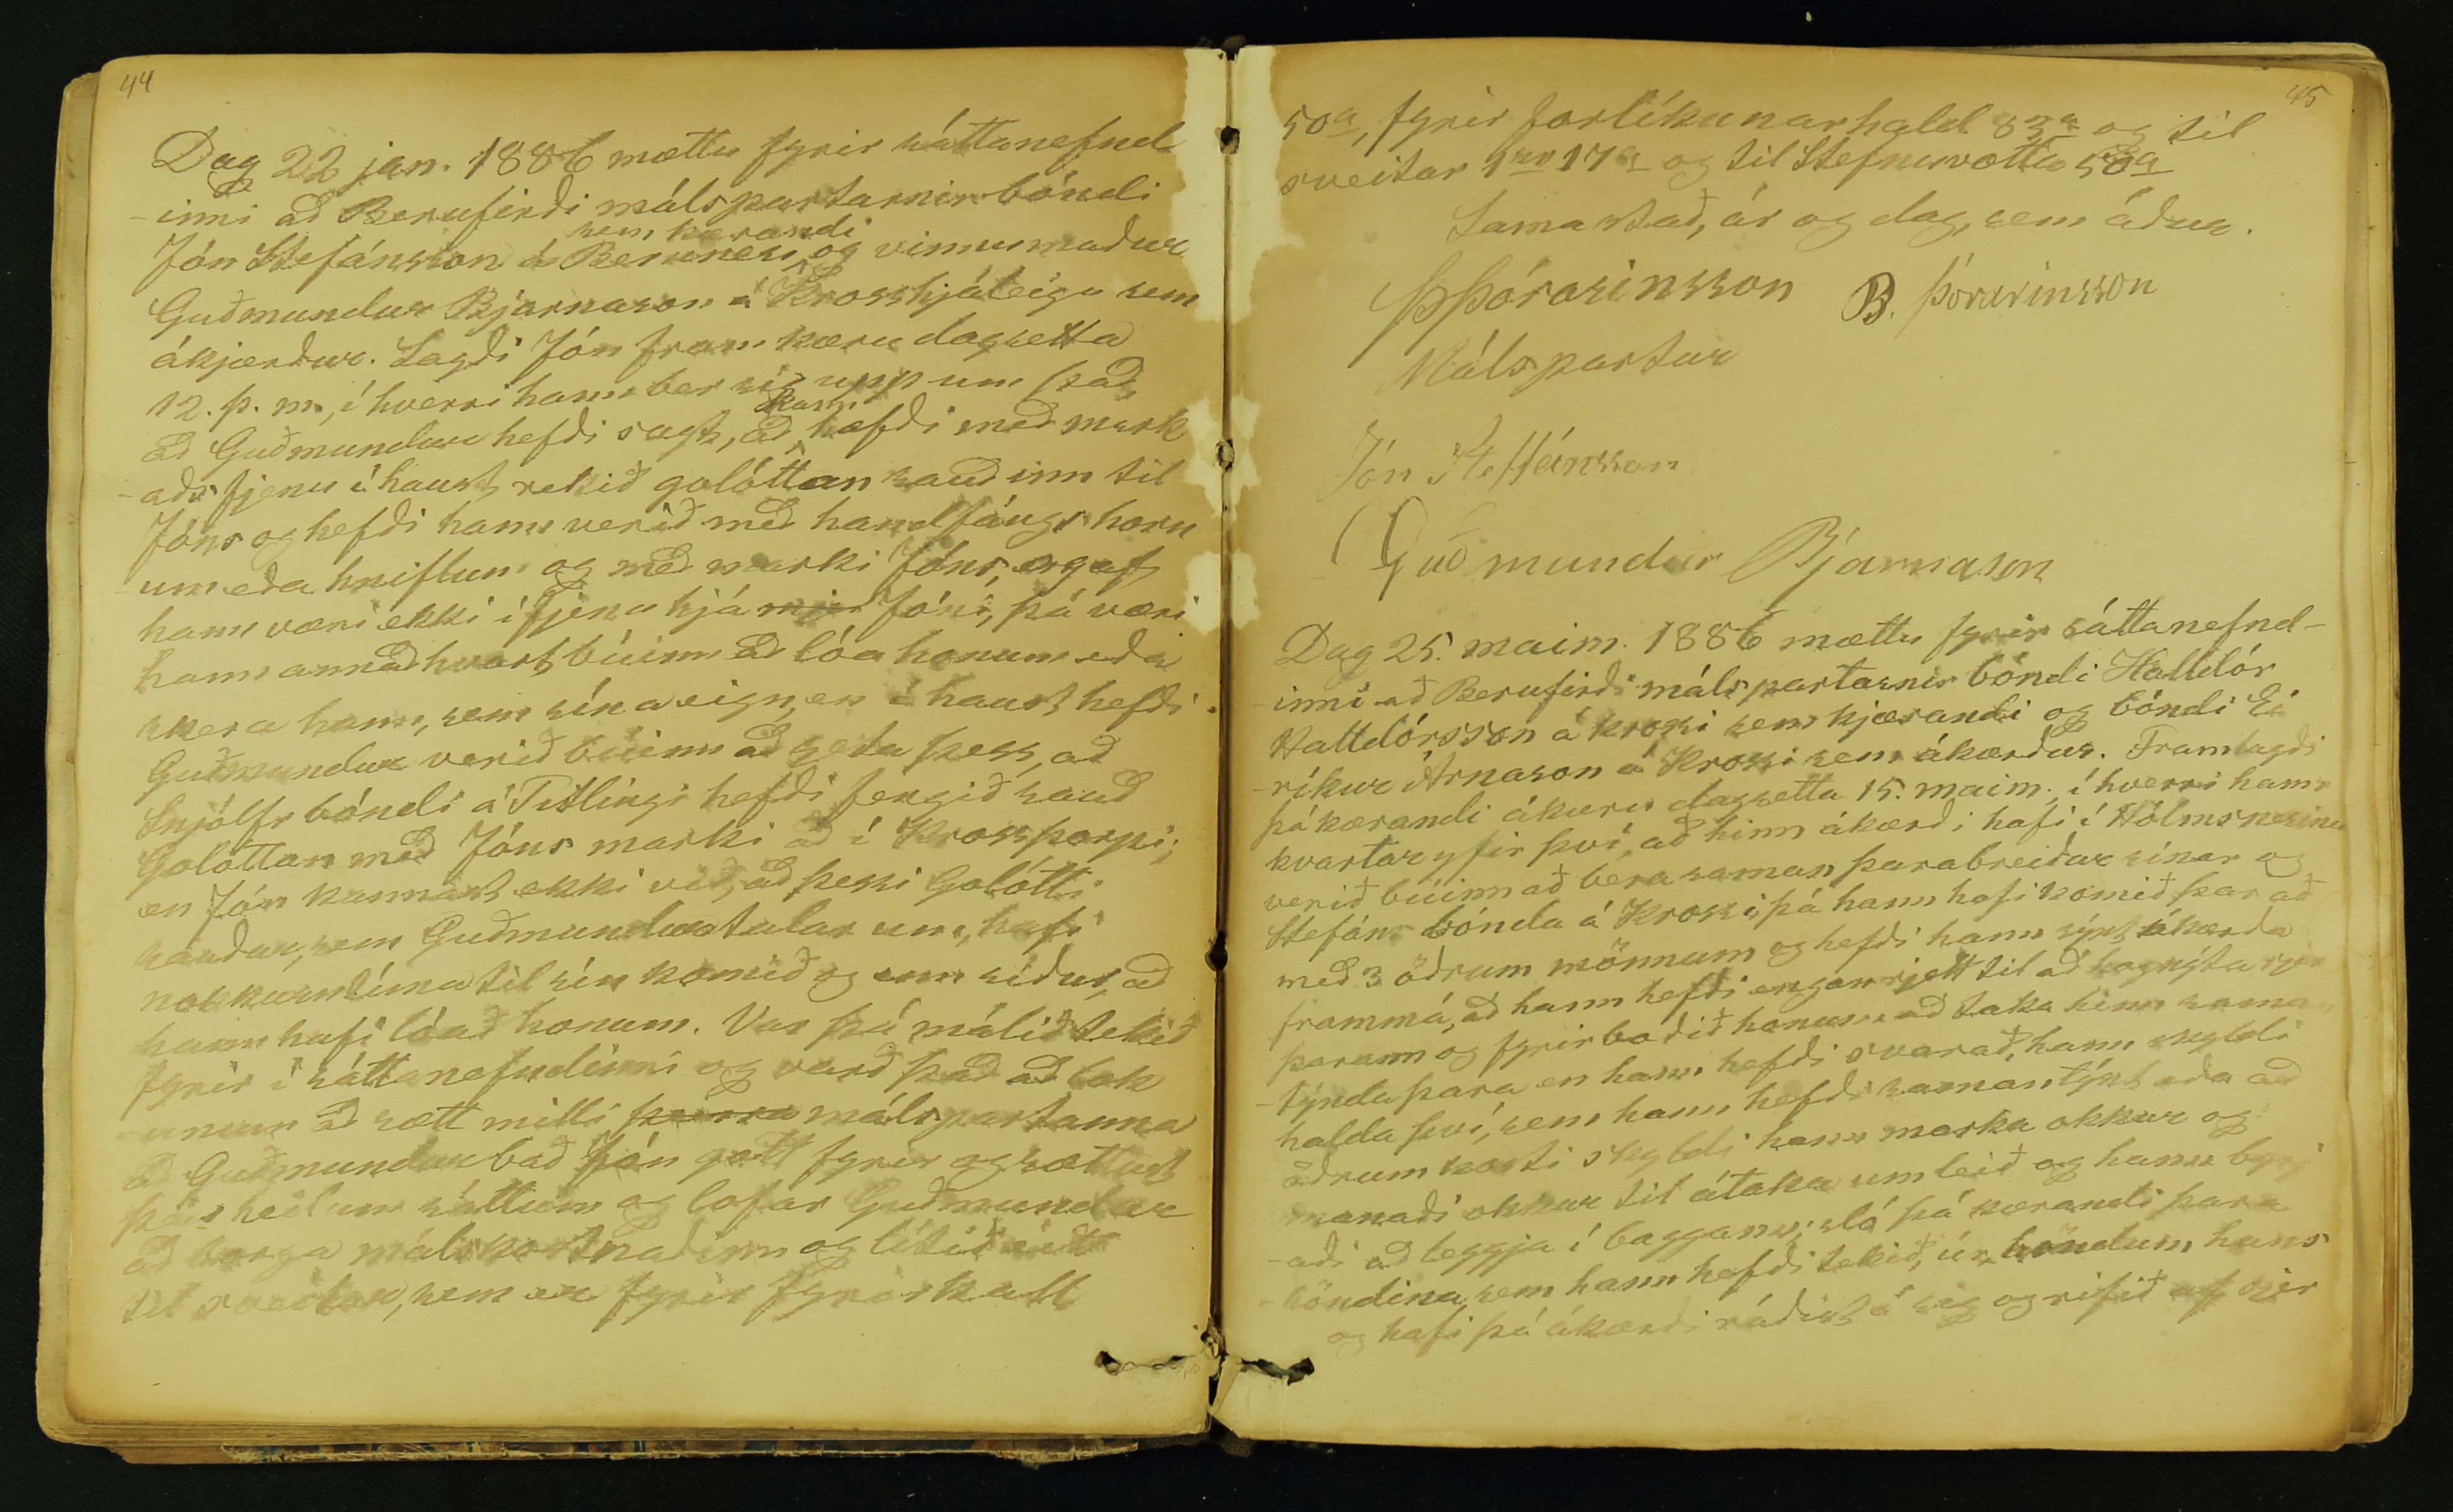 44
Dag 22 jan. 1886 mættu fyrir sáttanefnd
-inni að Berufirði málspartarnir bóndi
sem kærandi
Jón Stefánsson á Berunesi og vinnumaður
Guðmundur Bjarnason á Krosshjáleigu sem
ákjærður. Lagði Jón fram kæru dagsetta
12. þ. m., í hverri hann ber sig upp um það,
hann
að Guðmundur hefði sagt, að hefði með mark
-aðsfjenu í haust rekið golóttan sauð inn til
Jóns og hefði hann verið með handfángs horn
-um eða hniflum og með marki Jóns, og af
hann væri ekki í fjenu hjá mjer Jóni, þá væri
hann annaðhvort búinn að lóa honum eða
skera hann, sem sína eign, en í haust hefði
Guðmundur verið búinn að geta þess, að
Snjólfr bóndi á Titlingi hefði fengið sauð
Golóttan með Jóns marki að í Krossþorpi;
en Jón kannast ekki við, að þessi Golótti
sauður, sem Guðmundur talar um, hafi
nokkurntíma til sín komið og enn síður, að
hann hafi lóað honum. Var þá málið tekið
fyrir í sáttanefndinni og varð það að lok
-unum að sætt milli þeirra málspartanna
að Guðmundur bað Jón gott fyrir og sættust
þeir heilum sáttum og lofar Guðmundur
að borga málskostnaðinn og lítið eitt
til sveitar, sem er fyrir fyrirkall
45
50a, fyrir forlíkunarhald 83a og til
sveitar 1kr 17a og til Stefnuvotta 50a
Sama stað, ár og dag, sem áður.
ÞÞórarinsson B. Þórarinsson
Málspartur
Jón Steffánsson
Guðmundur Bjarnason
Dag 25. maim. 1886 mættu fyrir sáttanefnd-
-inni að Berufirði málspartarnir bóndi Halldór
Halldórsson á Krossi sem kjærandi og bóndi Ei
-ríkur Árnason á Krossi sem ákærður. Framlagði
þá kærandi ákæru dagsetta 15. maim., í hverri hann
kvartar yfir því, að hinn ákærði hafi í Hólmsnesinu
verið búinn að bera saman þarabreiður sínar og
Stefáns bónda á Krossi, þá hann hafi komið þar að
með 3 öðrum mönnum og hefði hann sýnt ákærða
frammá, að hann hefði engan rjett til að hagnýta sjer
þarann og fyrirboðið honum að taka hinn sama
-týnda þara en hann hefði svarað, hann skyldi
halda því, sem hann hefði samantýnt eða að
öðrum kosti skyldi hann merka okkur og
manaði okkur til átaka um leið og hann byrj
-aði að leggja í baggann; sló þá kærandi þara
-höndina, sem hann hefði tekið, úr höndum hans
og hafi þá ákærði ráðist á sig og rifið af sjer